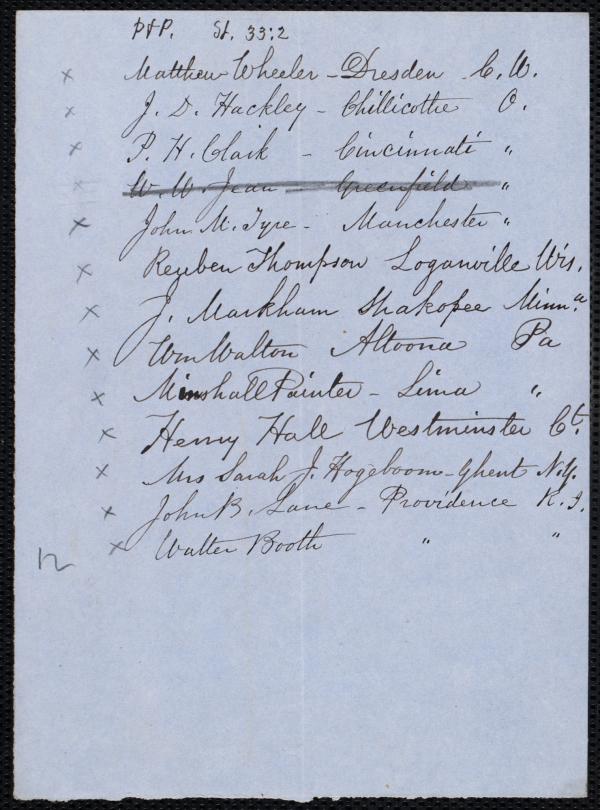 P&P. St. 33:2
x Matthew Wheeler - Dresden C. W.
x J. D. Hackley - Chillicothe O.
x P. H. Clark - Cincinnati "
x W. W. Jean - Greenfield "
x John M. Tyre - Manchester "
x Reuben Thompson Loganville Wis.
x J. Markham Shakopee Minn.a
x Wm Walton Altoona Pa
x Minshall Painter - Lima "
x Henry Hall Westminster Ct.
x Mrs Sarah J. Hogeboom - Ghent N.Y.
x John B. Lane - Providence R. I.
x Walter Booth " "
12